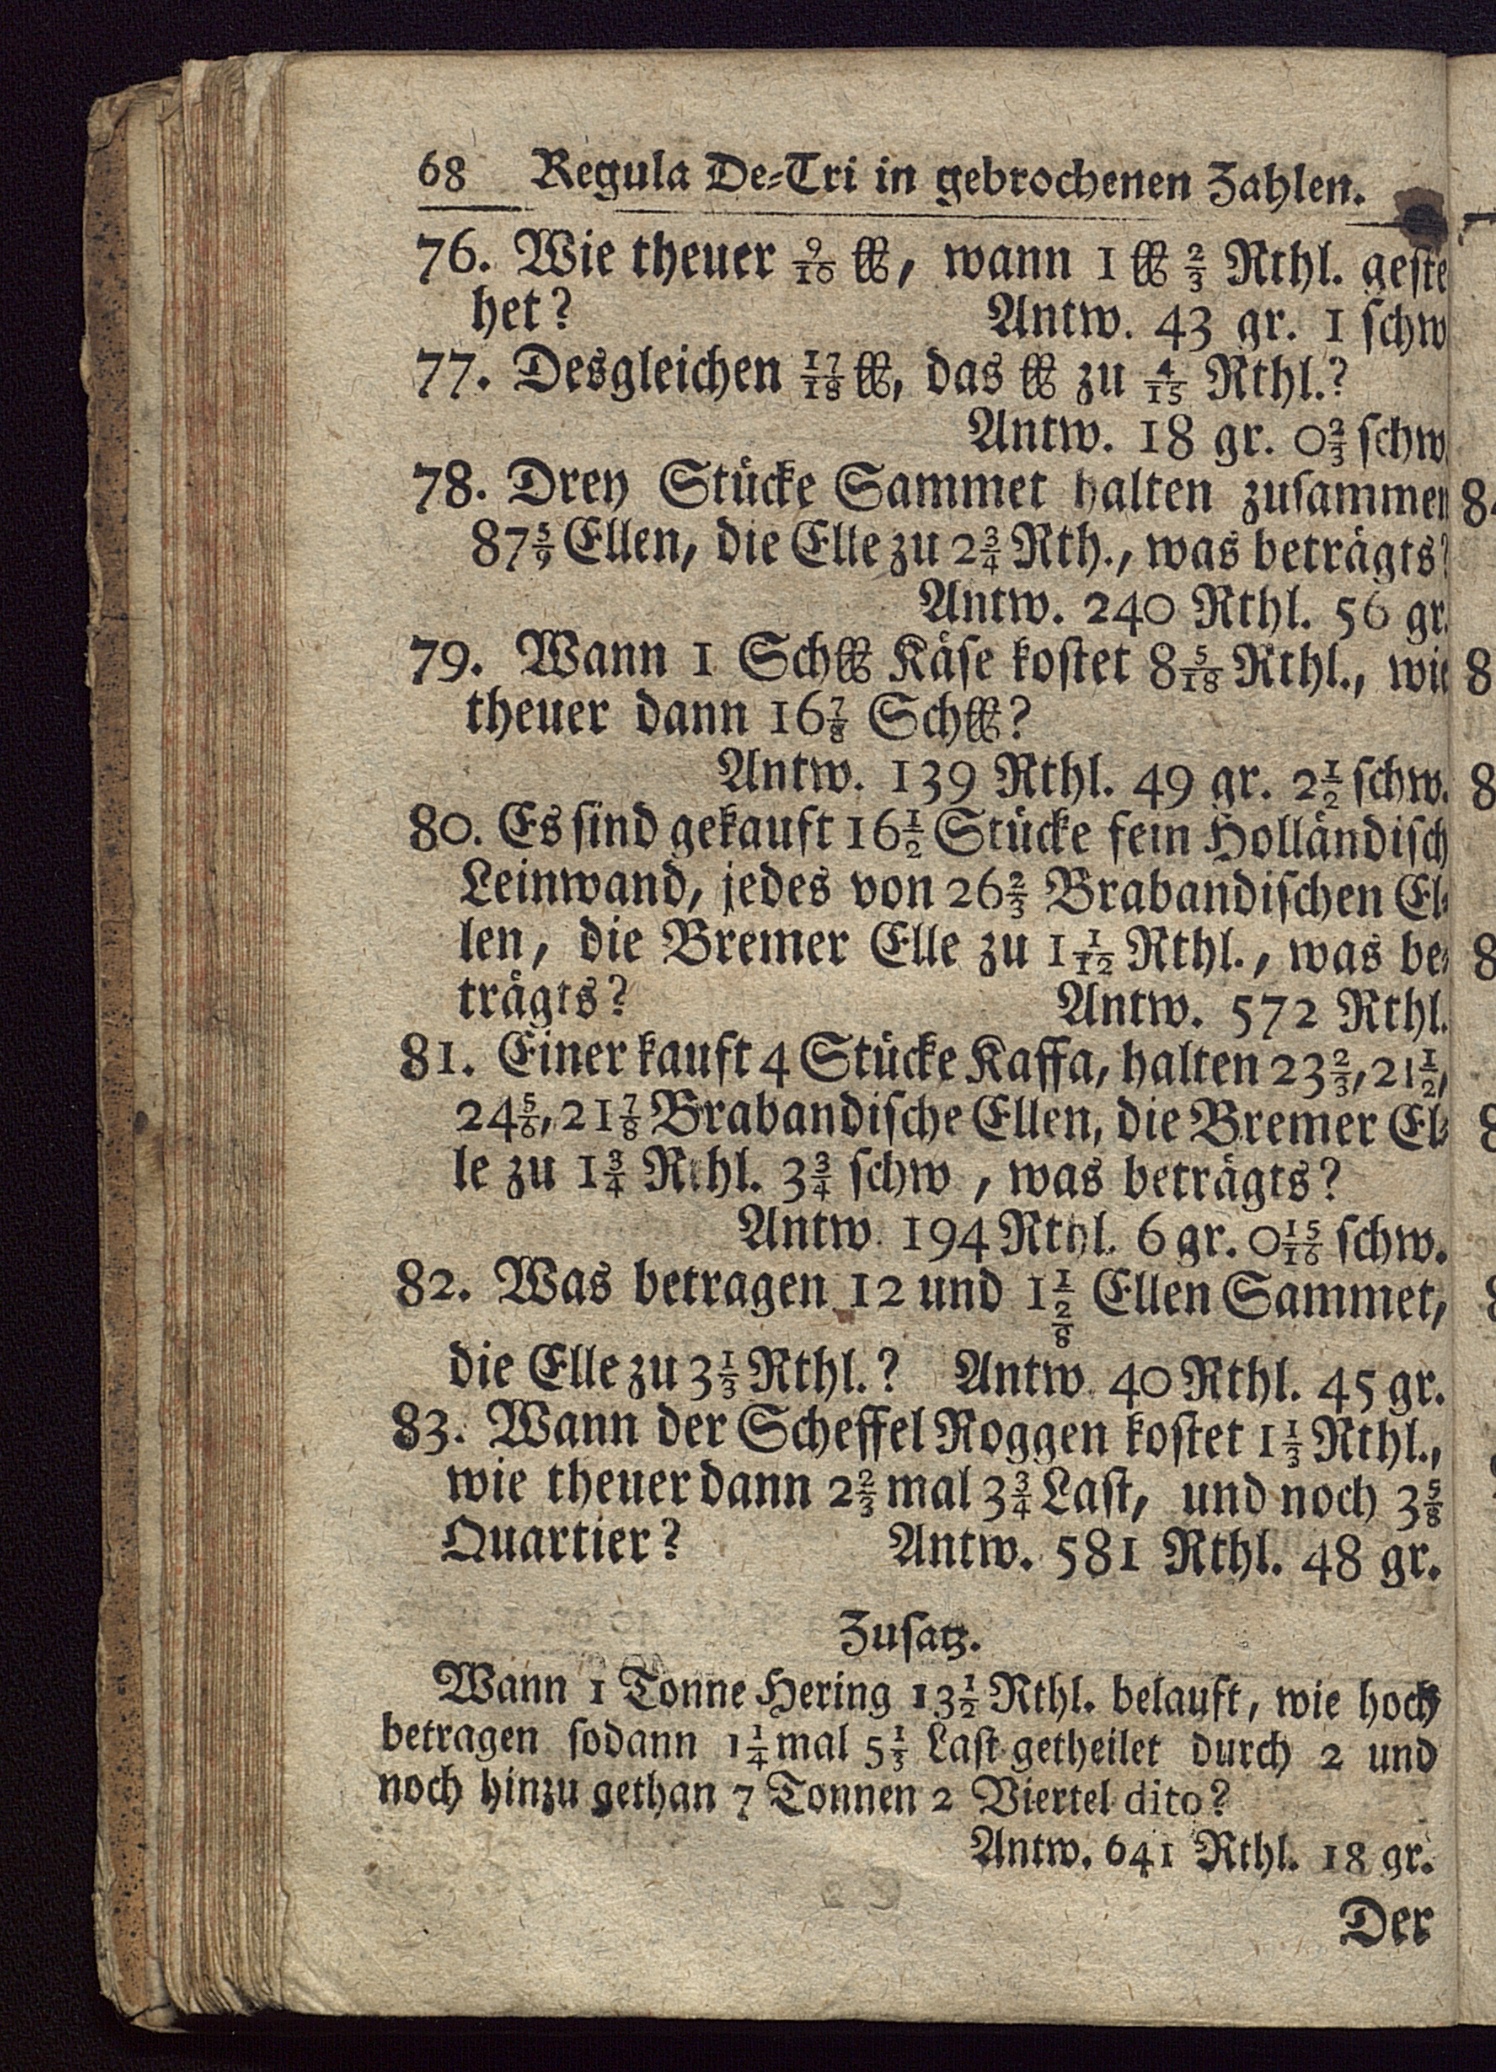 68 Regula De-Tri in gebrochenen Zahlen.
76. Wie theuer 9/10 ℔, wann 1 ℔ 2/3 Rthl. geste
het? Antw. 43 gr. 1 schw
77. Desgleichen 17/18 ℔, das ℔ zu 4/15 Rthl.?
Antw. 18 gr. 0 2/3 schw
78. Drey Stücke Sammet halten zusammen
87 5/9 Ellen, die Elle zu 2 3/4 Rth., was beträgts?
Antw. 240 Rthl. 56 gr.
79. Wann 1 Sch℔ Käse kostet 8 5/18 Rthl., wie
theuer dann 16 7/8 Sch℔?
Antw. 139 Rthl. 49 gr. 2 1/2 schw.
80. Es sind gekauft 16 1/2 Stücke fein Holländisch
Leinwand, jedes von 26 2/3 Brabandischen El-
len, die Bremer Elle zu 1 1/12 Rthl., was be-
trägts? Antw. 572 Rthl.
81. Einer kauft 4 Stücke Kaffa, halten 23 2/3, 21 1/2,
24 5/6, 21 7/8 Brabandische Ellen, die Bremer El-
le zu 1 3/4 Rthl. 3 3/4 schw , was beträgts?
Antw. 194 Rthl. 6 gr. 0 15/16 schw.
82. Was betragen 12 und 1 1/2/8 Ellen Sammet,
die Elle zu 3 1/3 Rthl.? Antw. 40 Rthl. 45 gr.
83. Wann der Scheffel Roggen kostet 1 1/3 Rthl.,
wie theuer dann 2 2/3 mal 3 3/4 Last, und noch 3 5/8
Quartier? Antw. 581 Rthl. 48 gr.
Zusatz.
Wann 1 Tonne Hering 13 1/2 Rthl. belauft, wie hoch
betragen sodann 1 1/4 mal 5 1/3 Last getheilet durch 2 und
noch hinzu gethan 7 Tonnen 2 Viertel dito?
Antw. 641 Rthl. 18 gr.
Der